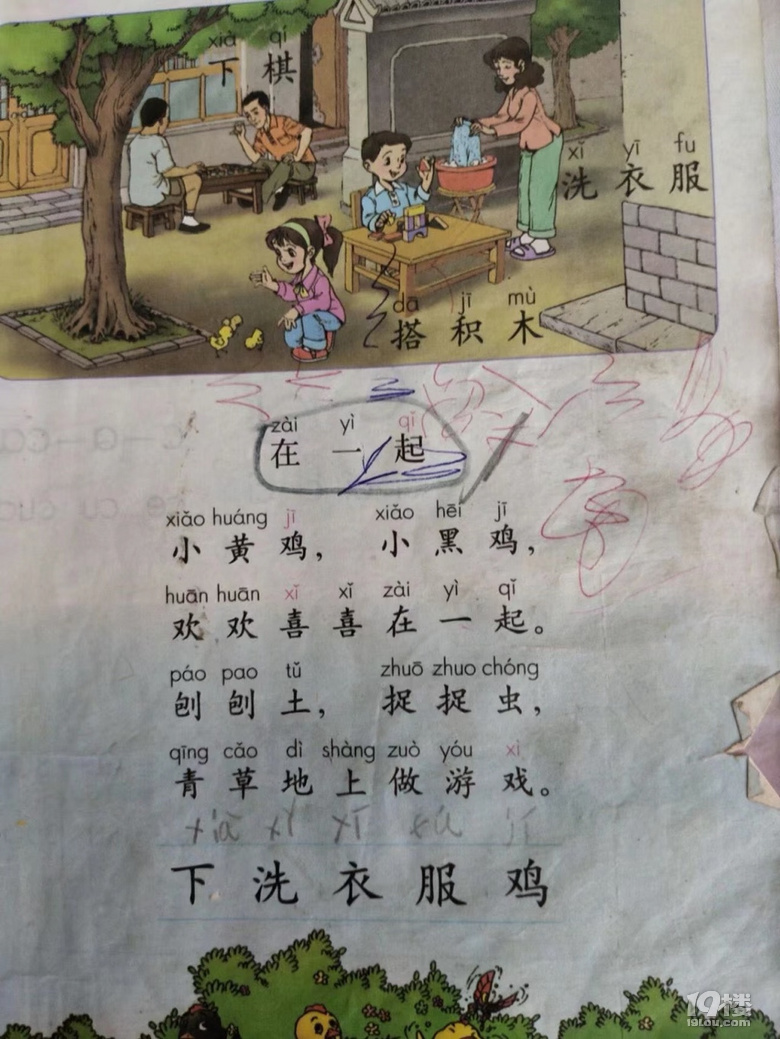 xià qí
下棋
xǐ yī fu
洗衣服
dā jī mù
搭积木
zài yì qǐ
在一起
xiǎo huáng jī xiǎo hēi jī
小黄鸡，小黑鸡，
huān huān xǐ xǐ zài yì qǐ
欢欢喜喜在一起。
páo pao tǔ zhuō zhuo chóng
刨刨土，捉捉虫，
qīng cǎo dì shàng zuò yóu xì
青草地上做游戏。
下洗衣服鸡
19楼
19lou.com